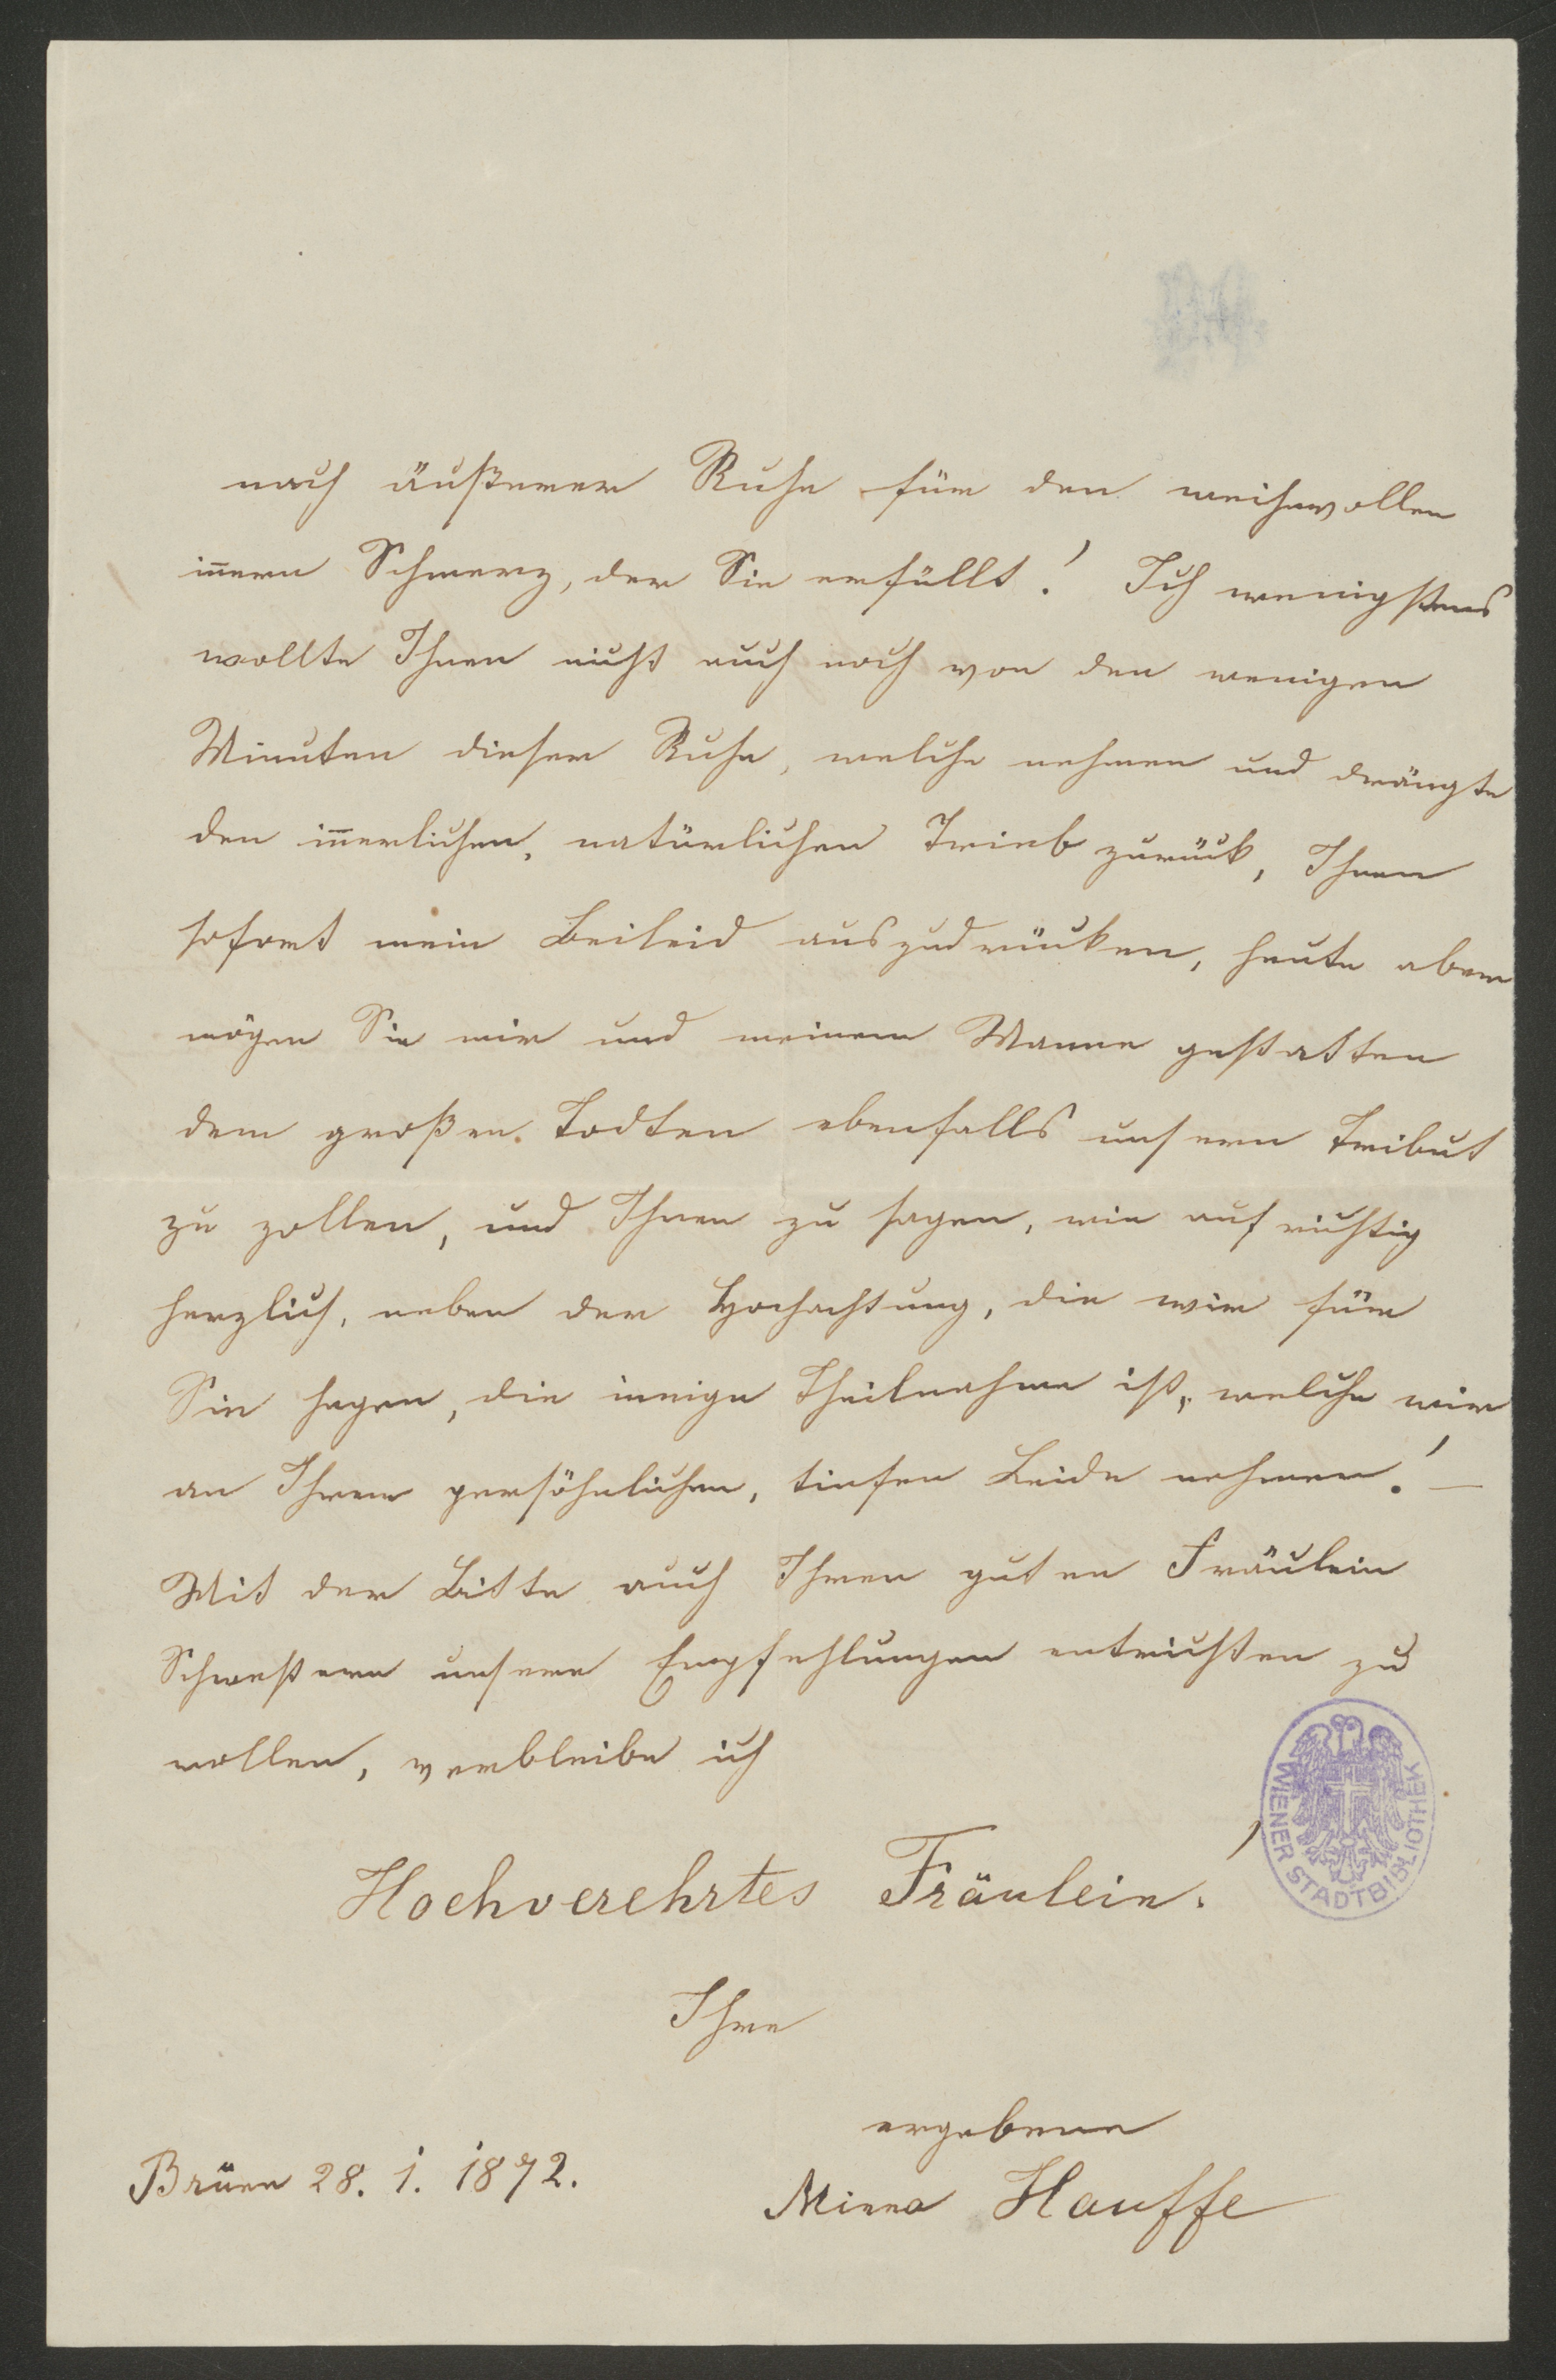 nach äußerer Ruhe für den weihevollen
iñern Schmerz, der Sie erfüllt! Ich wenigstens
wollte Ihnen nicht auch noch von den wenigen
Minuten dieser Ruhe, welche nehmen und drängte
den iñerlichen, natürlichen Trieb zurück, Ihnen
sofort mein Beileid auszudrücken, heute aber
mögen Sie mir und meinem Manne gestatten
dem großen Todten ebenfalls unsern Tribut
zu zollen, und Ihnen zu sagen, wie aufrichtig
herzlich, neben der Hochachtung, die wir für
Sie hegen, die innige Theilnahme ist, welche wir
an Ihrem persöhnlichen, tiefen Leide nehmen! —
Mit der Bitte auch Ihren guten Fräulein
Schwestern unsere Empfehlungen entrichten zu
wollen, verbleibe ich
Hochverehrtes Fräulein!
Ihre
ergebene
Brünn 28. 1. 1872.
Minna Hauffe
WIENER STADTBIBLIOTHEK